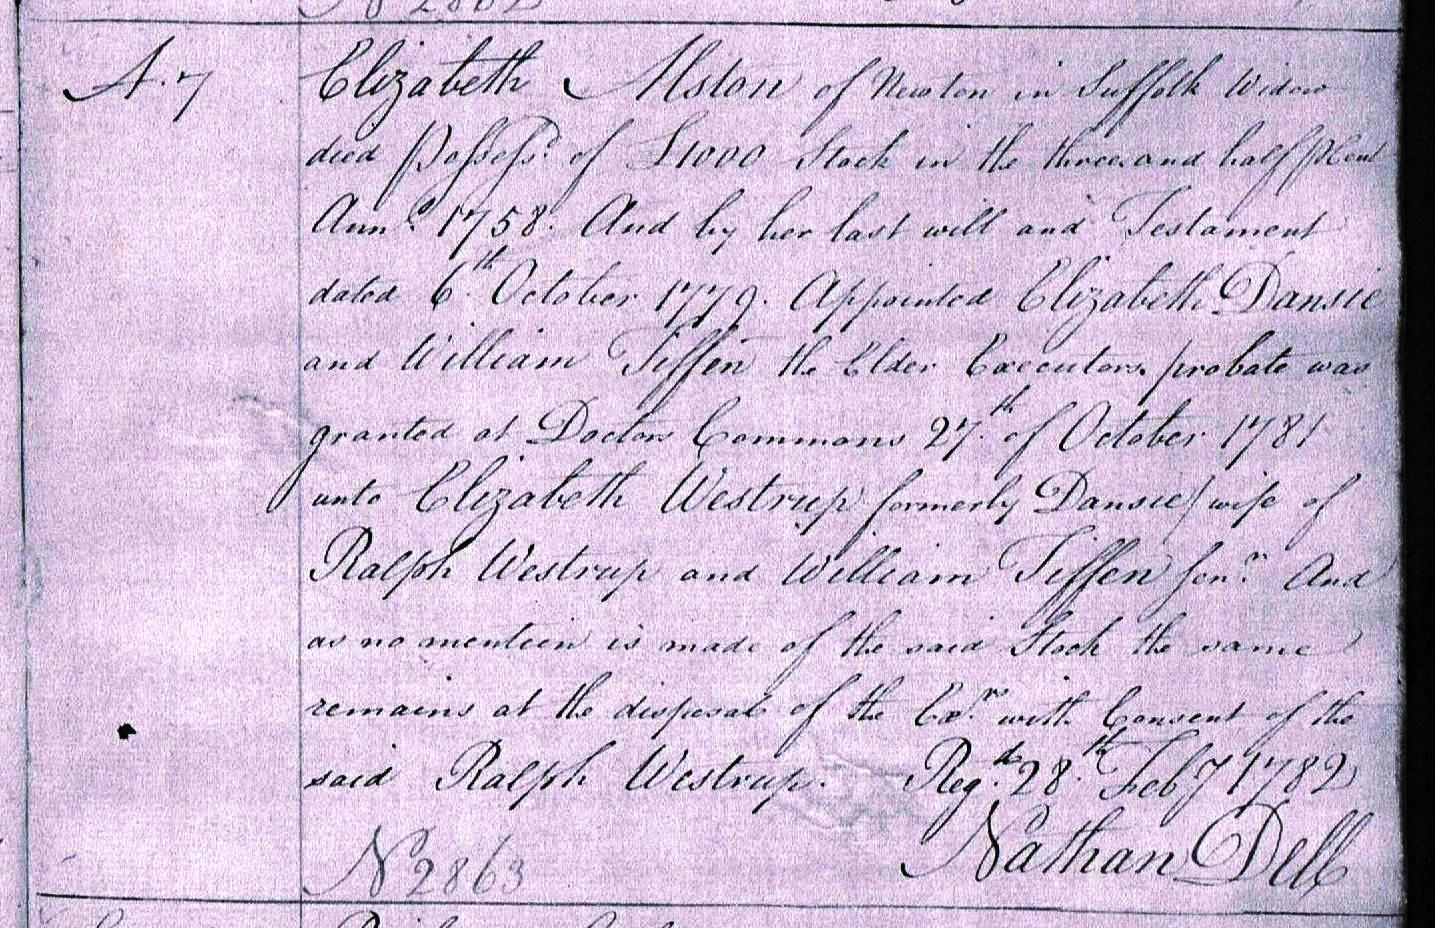 N 2862
A.7
Elizabeth Alston of Newton in Suffolk Widow
died Possess'd of £1000 Stock in the three and half p Cent
Ann.s 1758. And by her last will and Testament
dated 6th October 1779. Appointed Elizabeth Dansie
and William Tiffen the Elder Executors, probate was
granted at Doctors Commons 27th of October 1781
unto Elizabeth Westrup formerly Dansie) wife of
Ralph Westrup and William Tiffen Senr. And
as no mention is made of the said Stock the same
remains at the disposal of the Exrs. with Consent of the
said Ralph Westrup. Regd. 28th Feby 1782
Nathan Dell
N 2863